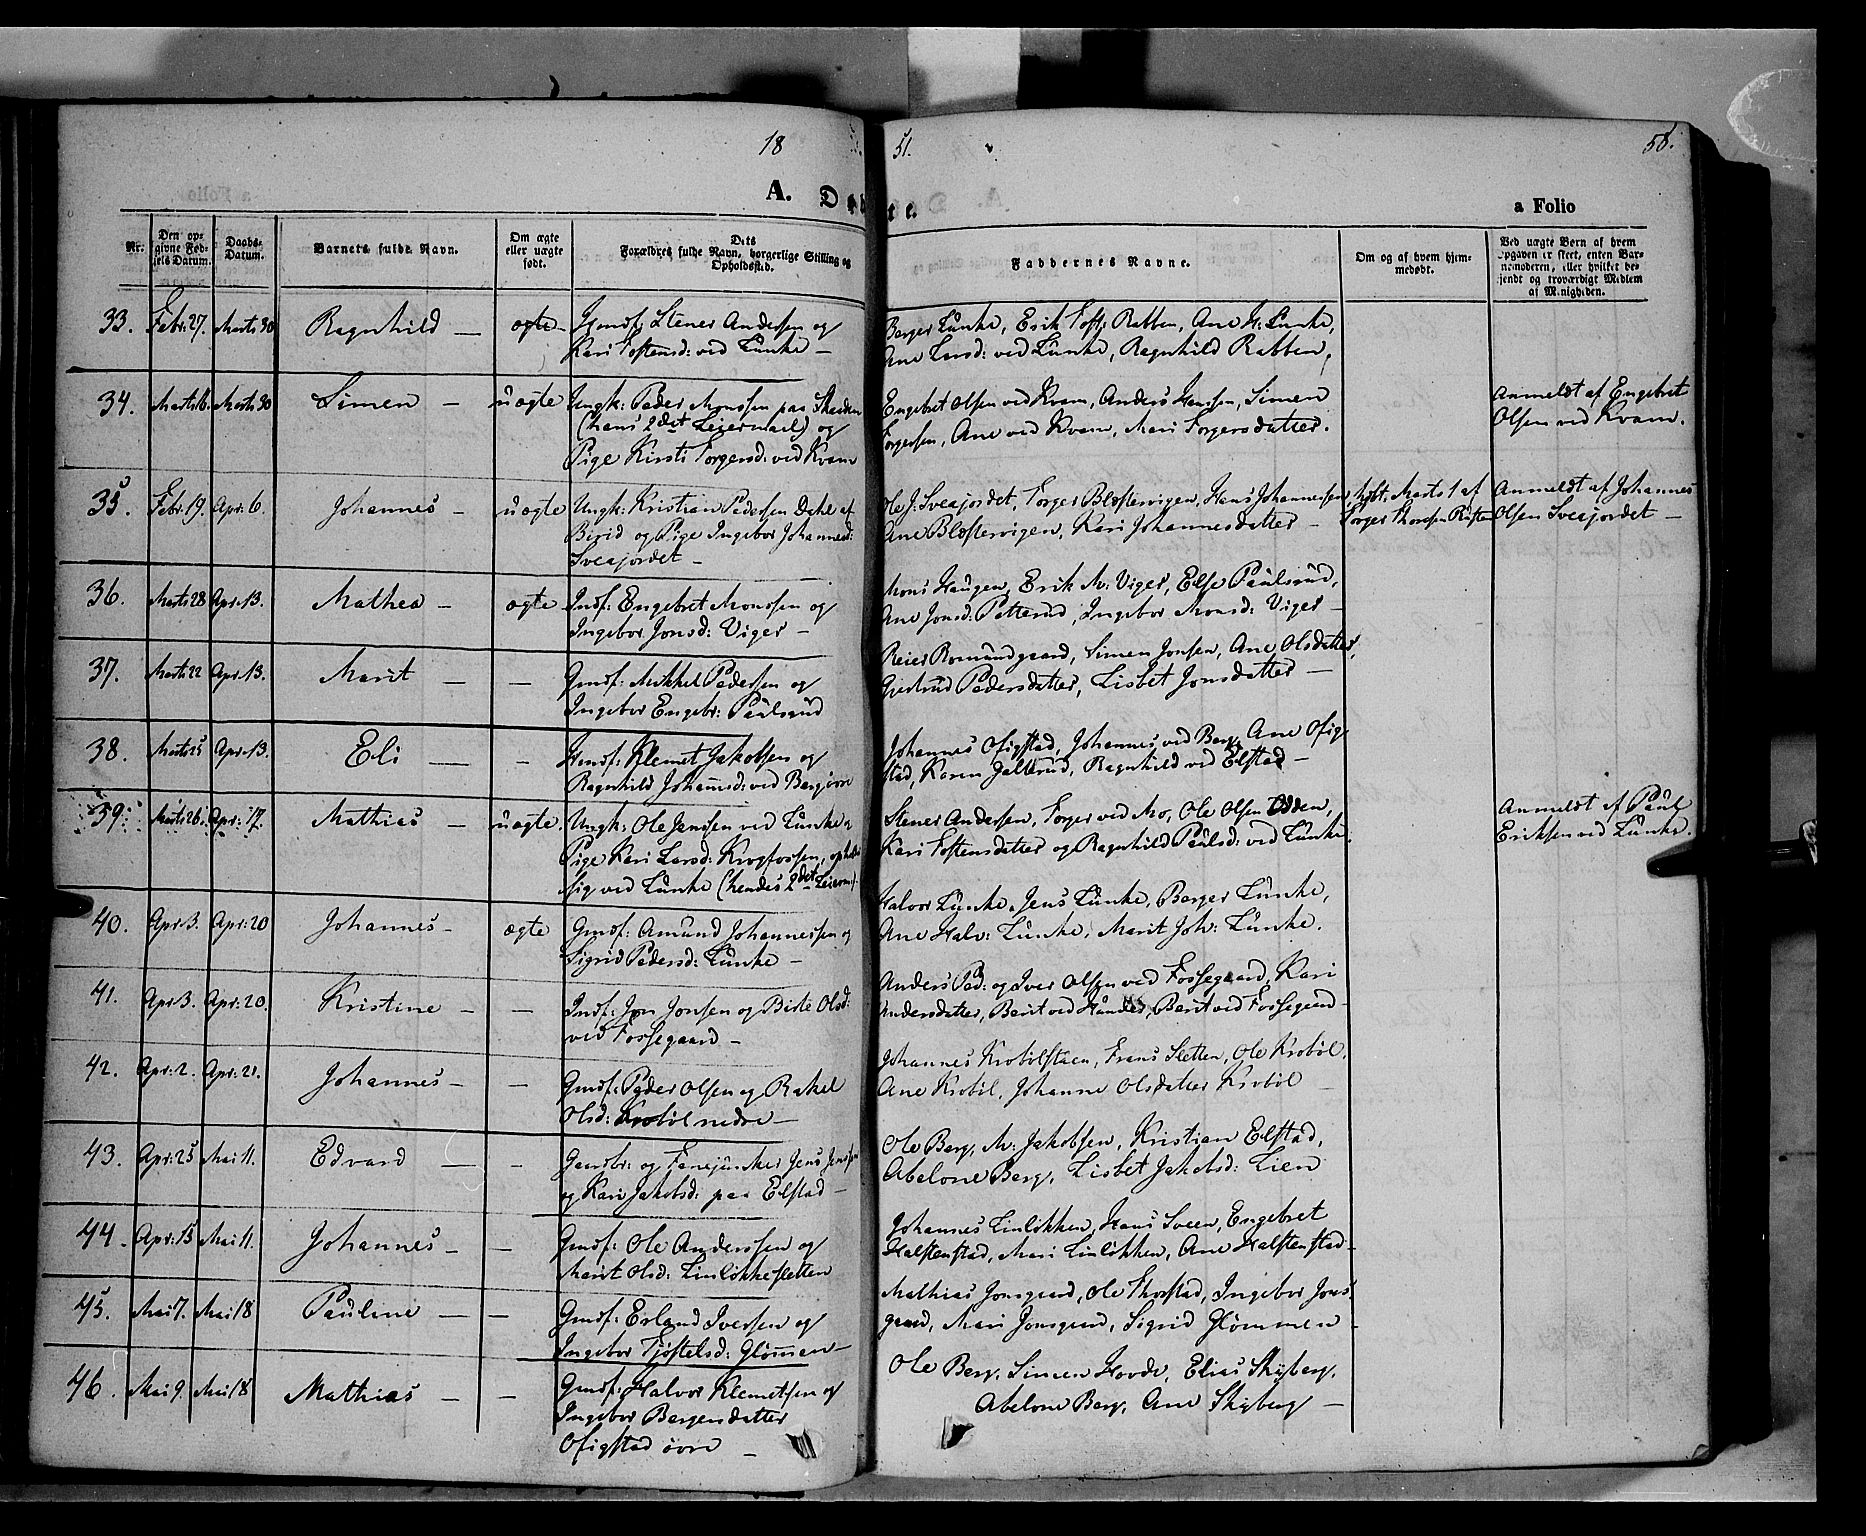 18 51. 58.
A. Døbte.
a Folio
Nr.
Den op-
givne Fød-
sels Datum.
Daabs-
Datum.
Barnets fulde Navn.
Om ægte
eller uægte
født.
Dets
Forældres fulde Navn, borgerlige Stilling og
Opholdssted.
Faddernes Navne.
Om og af hvem hjem-
medøbt.
Ved uægte Børn af hvem
Opgaven er skeet, enten Bar-
nemoderen, eller hvilket be-
kjendt og troværdigt Medlem
af Menigheden.
33. Febr: 27. Marts 30 Ragnhild — ægte — Huusf: Stener Andersen og
Kari Tostensd: ved Lunke —
Berger Lunke, Erik Tost: Ratten, Ane H: Lunke,
Ane Larsd: ved Lunke, Ragnhild Ratten,
34. Marts 6. Marts 30 Simen — uægte Ungk: Peder Monssen paa
(hans 2det Leiermaal) og
Pige Kirsti Torgersd: ved Kvam
Engebret Olsen ved Kvam, Anders Hanssen, Simen
Torgersen, Ane ved Kvam, Mari Torgersdatter.
Anmeldt af Engebret
Olsen ved Kvam.
35. Febr: 19. Apr: 6. Johannes — uægte Ungk: Kristian Pedersen Dahl af
Birid og Pige Ingebor Johannesd:
Sveajordet —
Ole J: Sveajordet, Torger Blostervigen, Hans Johannessen,
Ane Blostervigen, Kari Johannesdatter —
hjbt. Marts 1 af
Torger Thoresen
Anmeldt af Johannes
Olsen Sveajordet —
36. Marts 28 Apr: 13. Mathea — ægte Indf: Engebret Monssen og
Ingebor Jonsd: Viger —
Mons Haugen, Erik M: Viger, Else Paulsrud,
Ane Jonsd: Petterud, Ingebor Monsd: Viger —
37. Marts 22 Apr: 13. Marit — — Gmdf: Mikkel Pedersen og
Ingebor Engebr: Paulsrud
Reier Romundgaard, Simen Jonsen, Ane Olsdatter,
Gjertrud Pedersdatter, Lisbet Jonsdatter —
38. Marts 25 Apr: 13. Eli — — Huusf: Klemet Jakobsen og
Ragnhild Johannsd: ved Berg øvre
Johannes Ofigstad, Johannes ved Berg, Ane Ofig-
stad, Karen Jaltrud, Ragnhild ved Elstad —
39. Marts 26. Apr: 17. Mathias — uægte. Ungk: Ole Jenssen ved Lunke og
Pige Kari Larsd: Krogfossen, opholder
sig ved Lunke (hendes 2det Leierm:).
Stener Andersen, Torger ved Mo, Ole Olsen Odden,
Kari Tostensdatter og Ragnhild Paulsd: ved Lunke.
Anmeldt af Paul
Eriksen ved Lunke.
40. Apr: 3. Apr: 20 Johannes — ægte Gmdf: Amund Johannessen og
Sigrid Pedersd: Lunke —
Halvor Lunke, Jens Lunke, Berger Lunke,
Ane Halv: Lunke, Marit Joh: Lunke.
41. Apr: 3. Apr: 20. Kristine — — Indf: Jon Jonsen og Birte Olsd:
ved Fossegaard —
Anders Ped: og Iver Olsen ved Fossegaard, Kari
Andersdatter, Berit ved Hunder, Berit ved Fossegaard —
42. Apr: 2. Apr: 21. Johannes — — Gmdf: Peder Olsen og Rakel
Olsd: Krobøl nedre —
Johannes Krobølstuen, Frans Sletten, Ole Krobøl,
Ane Krobøl, Johanne Olsdatter Krobøl —
43. Apr: 25 Mai 11. Edvard — — Gaardbr: og Fanejunker Jens Jenssen
og Kari Jakobsd: paa Elstad —
Ole Berg, M: Jakobsen, Kristian Elstad,
Abelone Berg, Lisbet Jakobsd: Lien
44. Apr: 15 Mai 11. Johannes — — Gmdf: Ole Anderssen og
Marit Olsd: Linløkksletten
Johannes Linløkken, Hans Sveen, Engebret
Halstenstad, Mari Linløkken, Ane Halstenstad —
45. Mai 7. Mai 18 Pauline — — Gmdf: Erland Iversen og
Ingebor Tjøstelsd: Glømmen —
Mathias Jonsgaard, Ole Thorstad, Ingebor Jons-
gaard, Mari Jonsgaard, Sigrid Glømmen —
46. Mai 9. Mai 18 Mathias — — Gmdf: Halvor Klemetsen og
Ingebor Bergersdatter
Ofigstad øvre —
Ole Berg, Simen Hovde, Elias Skyberg,
Abelone Berg, Ane Skyberg —